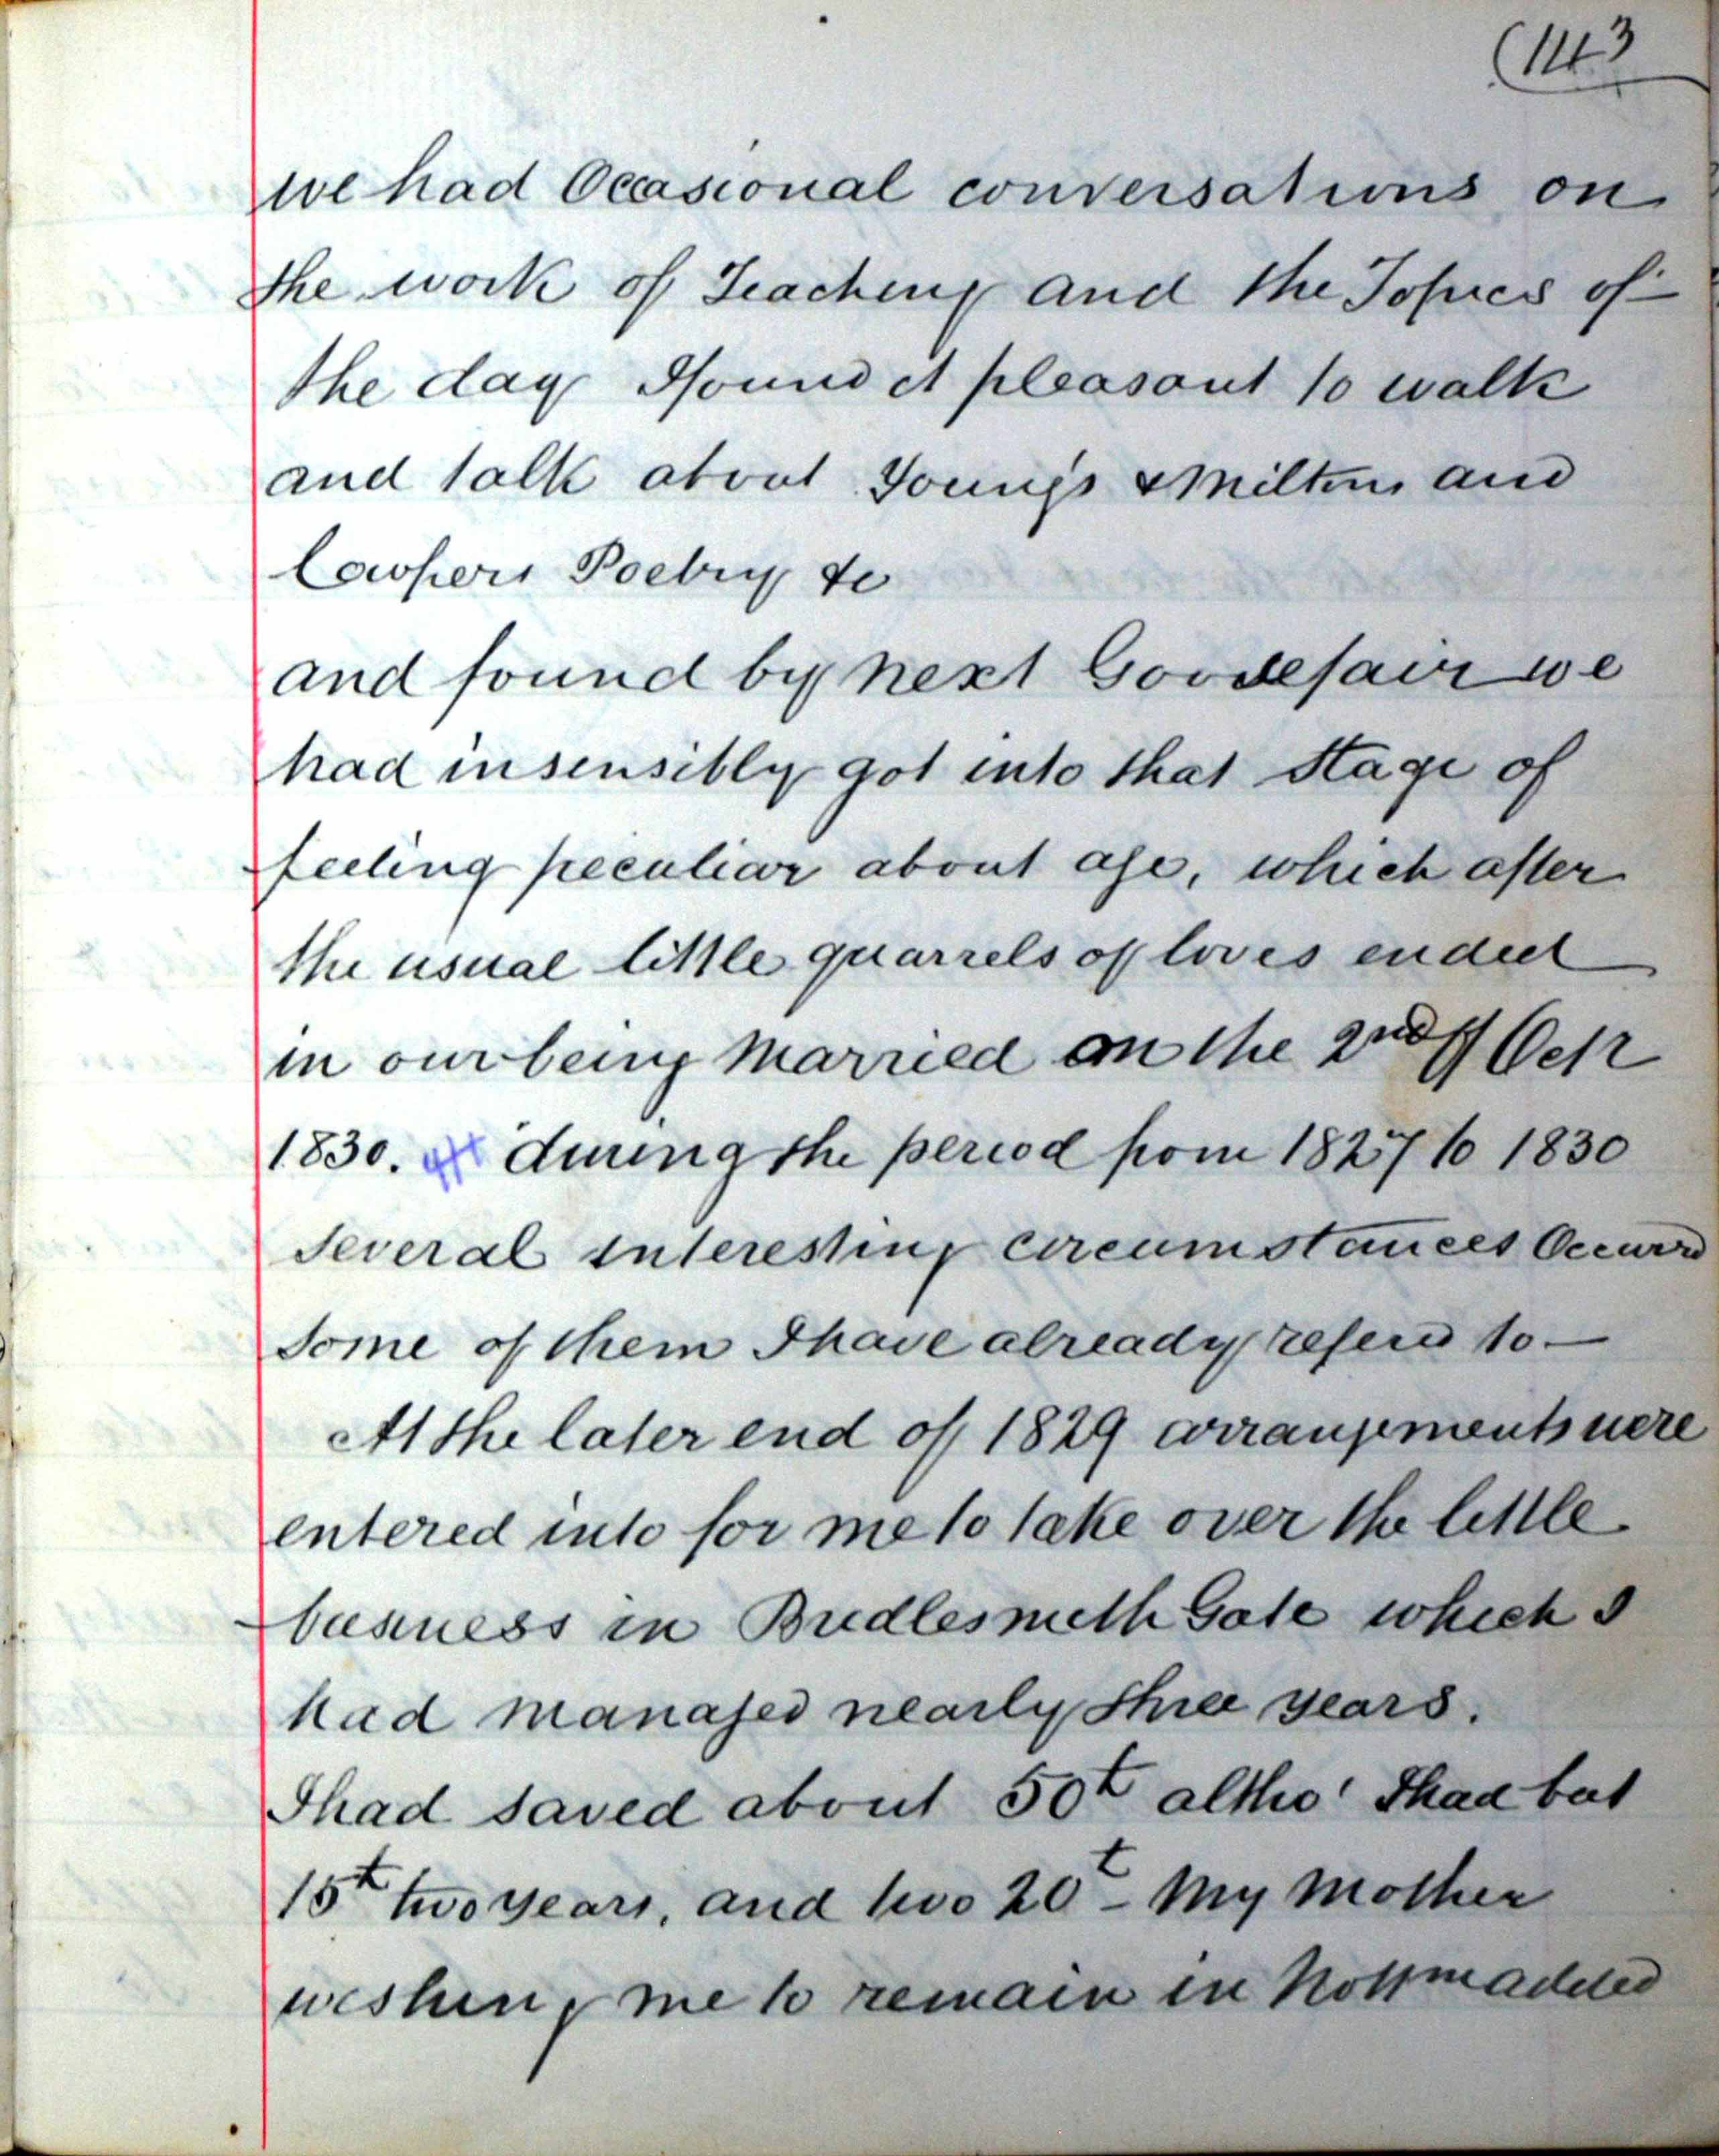 (143
we had Occasional conversations on
the work of Teaching and the Topics of
the day I found it pleasant to walk
and talk about Young's & Miltons and
Cowpers Poetry &c
and found by next Goosefair we
had insensibly got into that stage of
feeling peculiar about age, which after
the usual little quarrels of loves ended
in our being Married on the 2nd of Octr
1830. during the period from 1827 to 1830
Several interesting circumstances Occurrd
Some of them I have already referd to —
At the later end of 1829 arrangements were
entered into for me to take over the little
business in Bridlesmith Gate which I
had managed nearly three years.
I had saved about 50£ altho' I had but
15£ two years, and two 20£ - My Mother
wishing me to remain in Nottm added